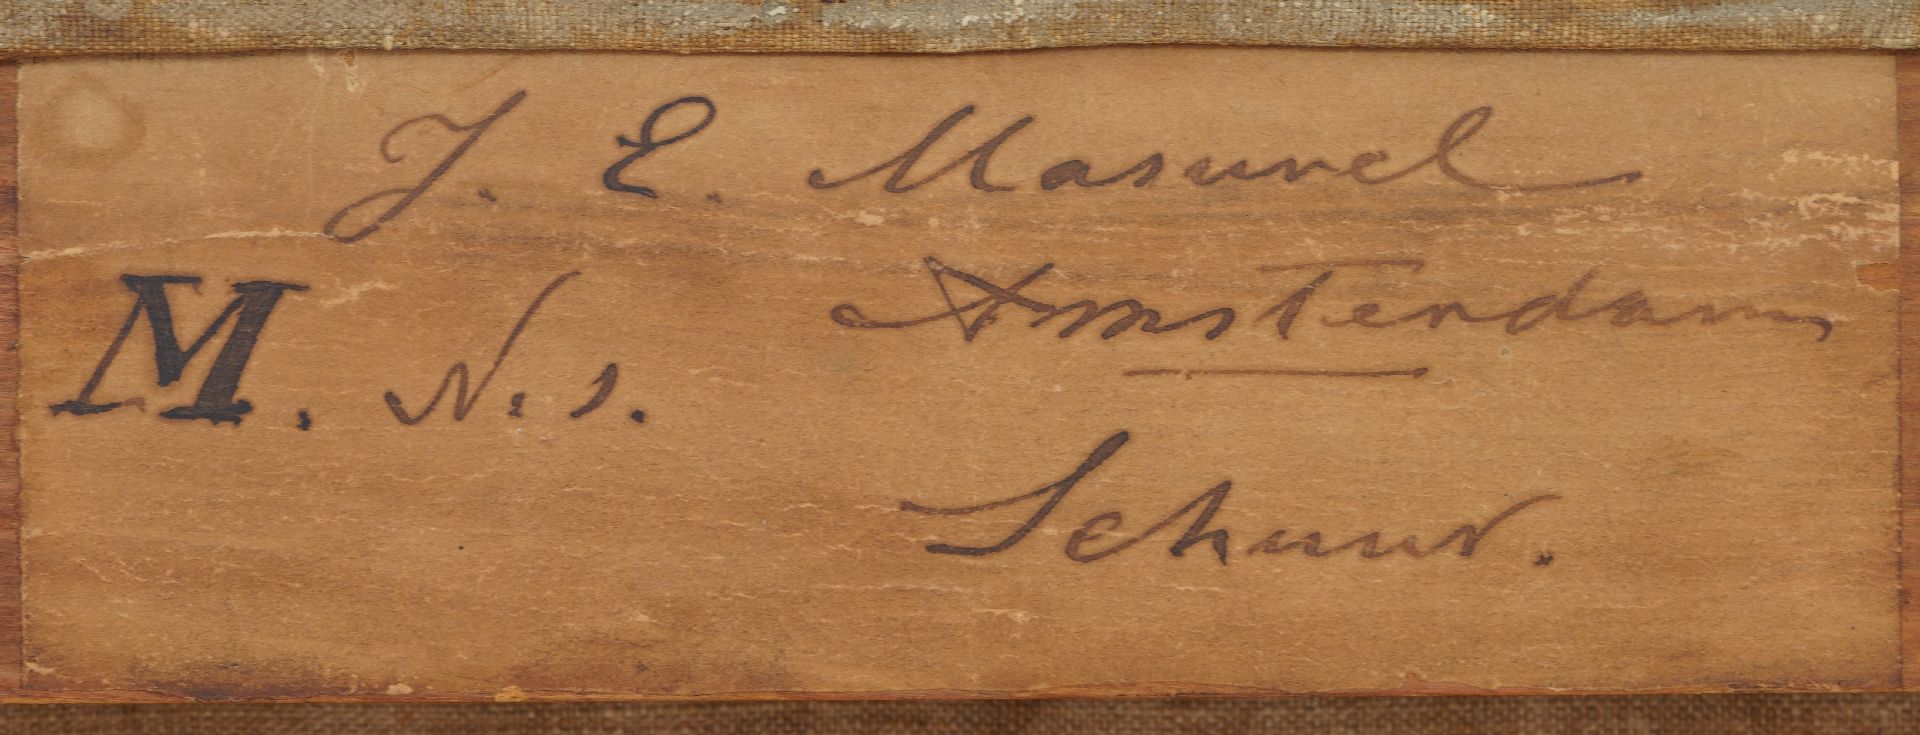 J. E. Masurel
Amsterdam
M. N. 1.
Schuur.